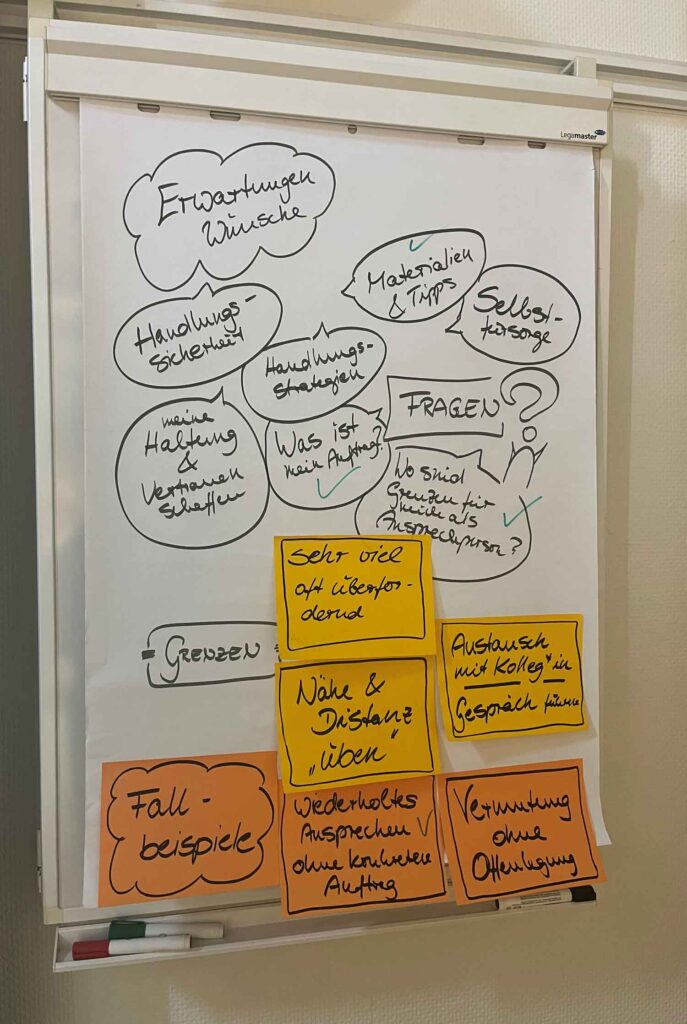 Legamaster
Erwartungen
Wünsche
Materialien
& Tipps
Selbst-
fürsorge
Handlungs-
sicherheit
Handlungs-
strategien
FRAGEN
?
meine
Haltung
&
Vertrauen
schaffen
Was ist
mein Auftrag?
Wo sind
Grenzen für
mich als
Ansprechperson?
sehr viel
oft überfor-
dernd
= GRENZEN =
Nähe &
Distanz
„üben“
Austausch
mit Kolleg*in
Gespräch führen
Fall-
beispiele
Wiederholtes
Ansprechen
ohne konkreten
Auftrag
Vermutung
ohne
Offenlegung